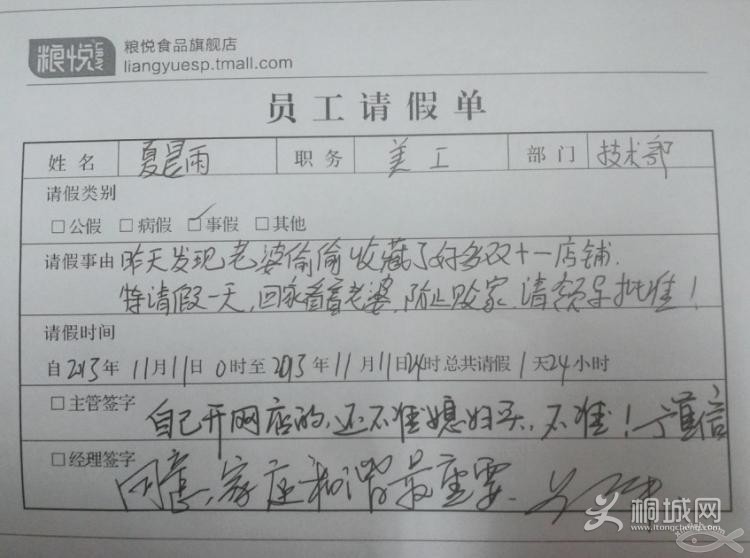 粮悦
LIRAY
粮悦食品旗舰店
liangyuesp.tmall.com
员工请假单
姓名 夏昆雨 职务 美工 部门 技术部
请假类别
□公假 □病假 ☑事假 □其他
请假事由 昨天发现老婆偷偷收藏了好多双十一店铺.
特请假一天,回家看着老婆,防止败家.请领导批准!
请假时间
自2013年11月11日0时至2013年11月11日24时总共请假1天24小时
□主管签字 自己开网店的,还不准媳妇买,不准!
□经理签字 同意,家庭和谐最重要.
桐城网
www.itongcheng.com